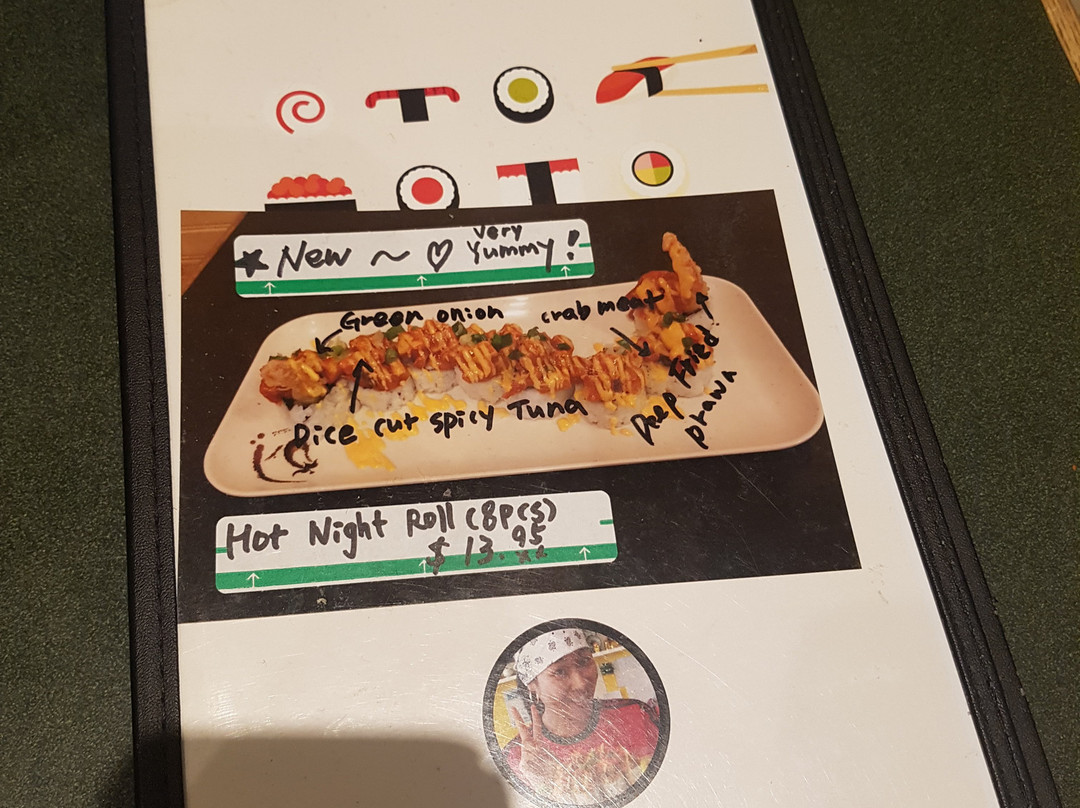 ★ New ~ ♡ very Yummy!
Green onion
crab meat
Dice cut spicy Tuna
Deep Fried
prawn
Hot Night Roll (8pcs)
$13.95